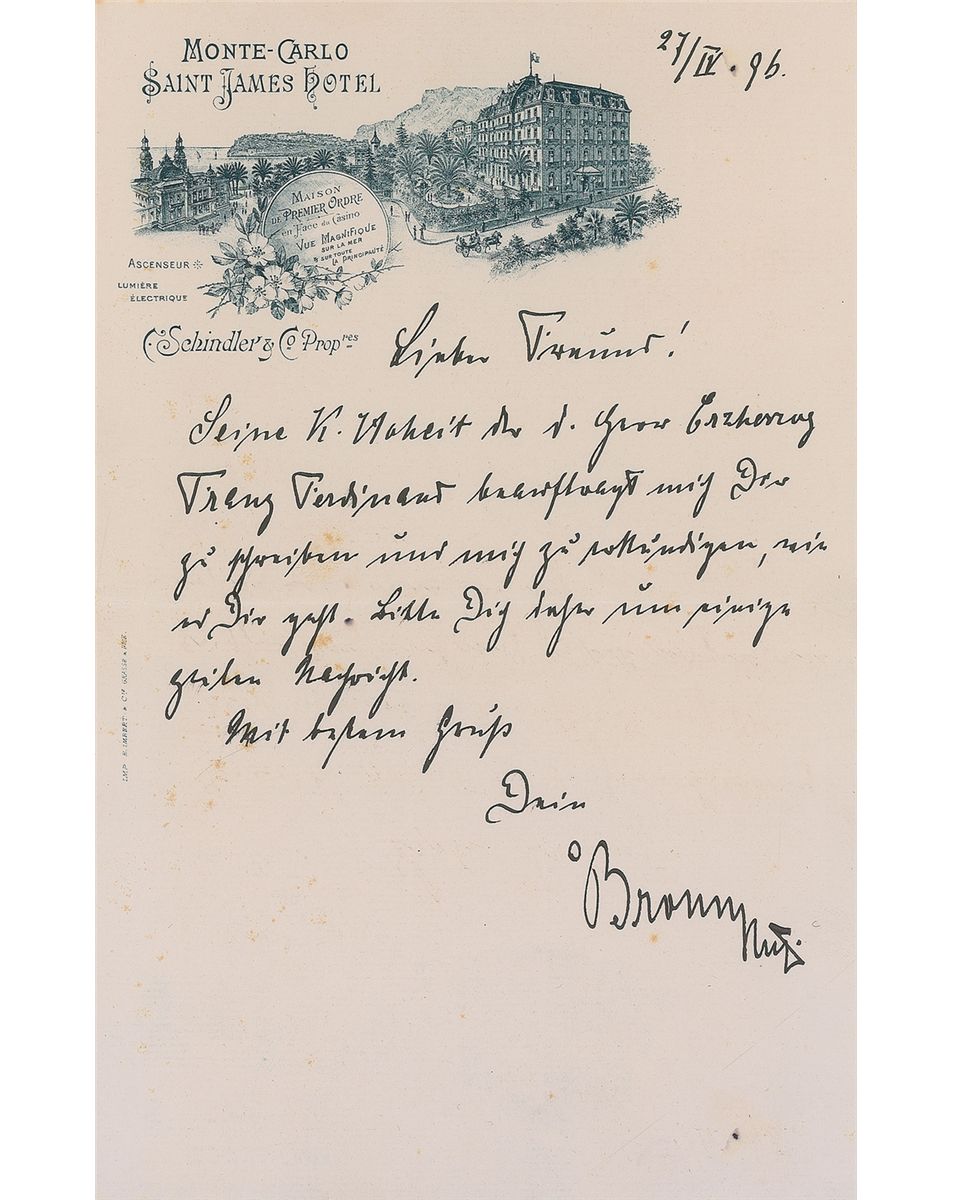 27/IV. 96.
MONTE-CARLO
SAINT JAMES HOTEL
MAISON
DE PREMIER ORDRE
en Face du Casino
VUE MAGNIFIQUE
SUR LA MER
& SUR TOUTE
LA PRINCIPAUTÉ
ASCENSEUR
LUMIÈRE
ÉLECTRIQUE
C. Schindler & Co Propres
Lieber Freund!
Seine K. Hoheit der d. Herr Erzherzog
Franz Ferdinand beauftragt mich Dir
zu schreiben und mich zu erkundigen, wie
es Dir geht. Bitte Dich daher um einige
Zeilen Nachricht.
Mit bestem Gruß
Dein
Bronn
IMP. E. IMBERT & Cie GRASSE